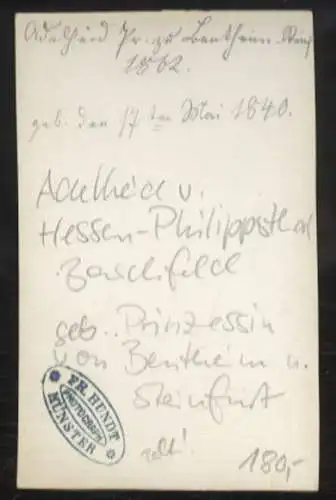 Adelheid Pr. zu Bentheim
1862.
geb. den 17ten Mai 1840.
Adelheid v.
Hessen-Philippsthal
Barchfeld
geb. Prinzessin
von Bentheim u.
Steinfurt
FR. HUNDT
PHOTOGRAPH
MÜNSTER
180,-